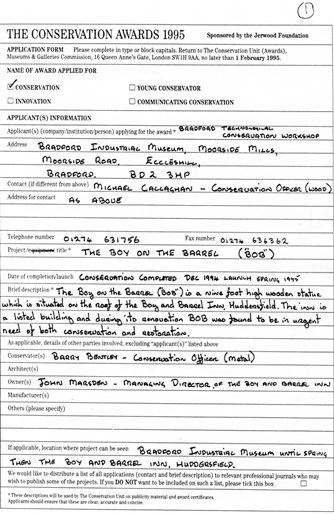 1
THE CONSERVATION AWARDS 1995 Sponsored by the Jerwood Foundation
APPLICATION FORM Please complete in type or block capitals. Return to The Conservation Unit (Awards),
Museums & Galleries Commission, 16 Queen Anne's Gate, London SW1H 9AA, no later than 1 February 1995.
NAME OF AWARD APPLIED FOR
☑ CONSERVATION ☐ YOUNG CONSERVATOR
☐ INNOVATION ☐ COMMUNICATING CONSERVATION
APPLICANT(S) INFORMATION
Applicant(s) (company/institution/person) applying for the award* BRADFORD TECHNOLOGICAL
CONSERVATION WORKSHOP
Address BRADFORD INDUSTRIAL MUSEUM, MOORSIDE MILLS,
MOORSIDE ROAD, ECCLESHILL,
BRADFORD. BD2 3HP
Contact (if different from above) MICHAEL CALLAGHAN - CONSERVATION OFFICER (WOOD)
Address for contact AS ABOVE
Telephone number 01274 631756 Fax number 01274 636362
Project /equipment title* THE BOY ON THE BARREL (BOB')
Date of completion/launch CONSERVATION COMPLETED DEC 1994 LAUNCH SPRING 1995
Brief description* The Boy on the Barrel (Bob') is a nine foot high wooden statue
which is situated on the roof of the Boy and Barrel Inn, Huddersfield. The inn is
a listed building and during its renovation BOB was found to be in urgent
need of both conservation and restoration.
As applicable, details of other parties involved, excluding "applicant(s)" listed above
Conservator(s) BARRY BENTLEY - Conservation Officer (Metal)
Architect(s)
Owner(s) JOHN MARSDEN - MANAGING DIRECTOR OF THE BOY AND BARREL INN
Manufacturer(s)
Others (please specify)
If applicable, location where project can be seen BRADFORD INDUSTRIAL MUSEUM UNTIL SPRING
THEN THE BOY AND BARREL INN, HUDDERSFIELD.
We would like to distribute a list of all applications (contact and brief description) to relevant professional journals who may
wish to publish some of the projects. If you DO NOT want to be included on such a list, please tick this box ☐
* These descriptions will be used by The Conservation Unit on publicity material and award certificates.
Applicants should ensure that these are clear, accurate and concise.